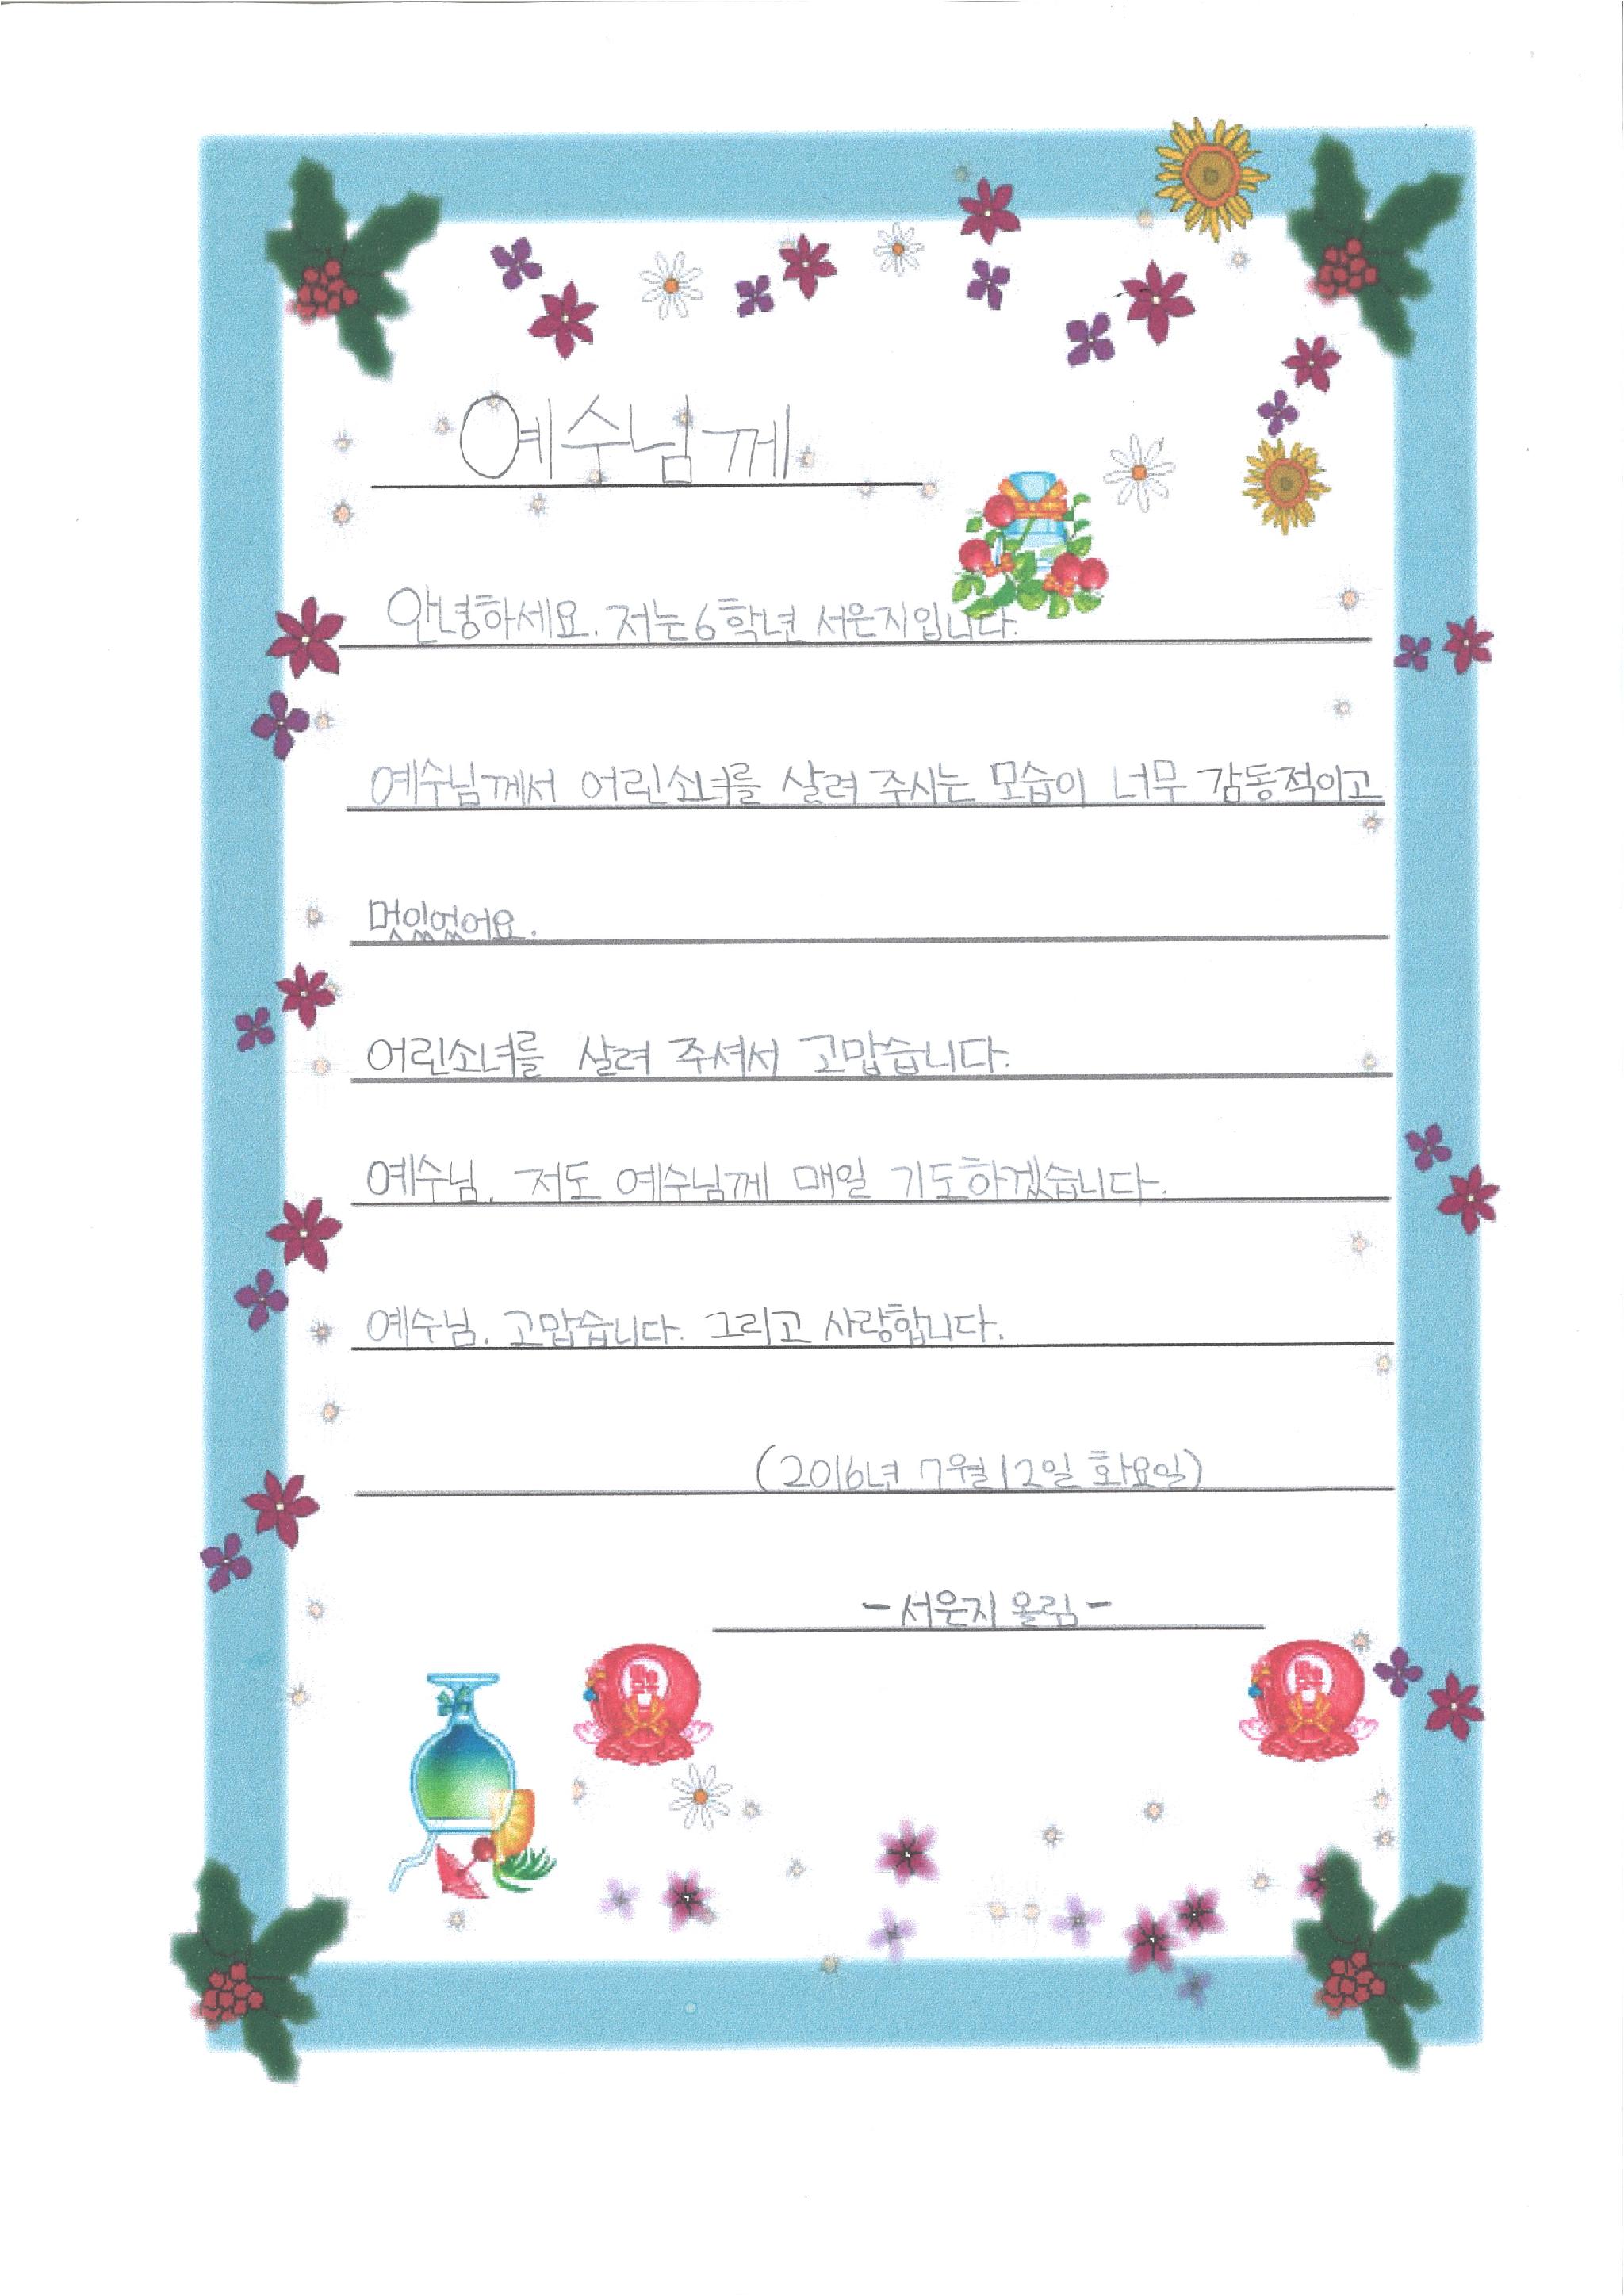 예수님께
안녕하세요. 저는 6학년 서은지입니다.
예수님께서 어린소녀를 살려 주시는 모습이 너무 감동적이고
멋있었어요.
어린소녀를 살려 주셔서 고맙습니다.
예수님. 저도 예수님께 매일 기도하겠습니다.
예수님. 고맙습니다. 그리고 사랑합니다.
(2016년 7월 12일 화요일)
- 서은지 올림 -